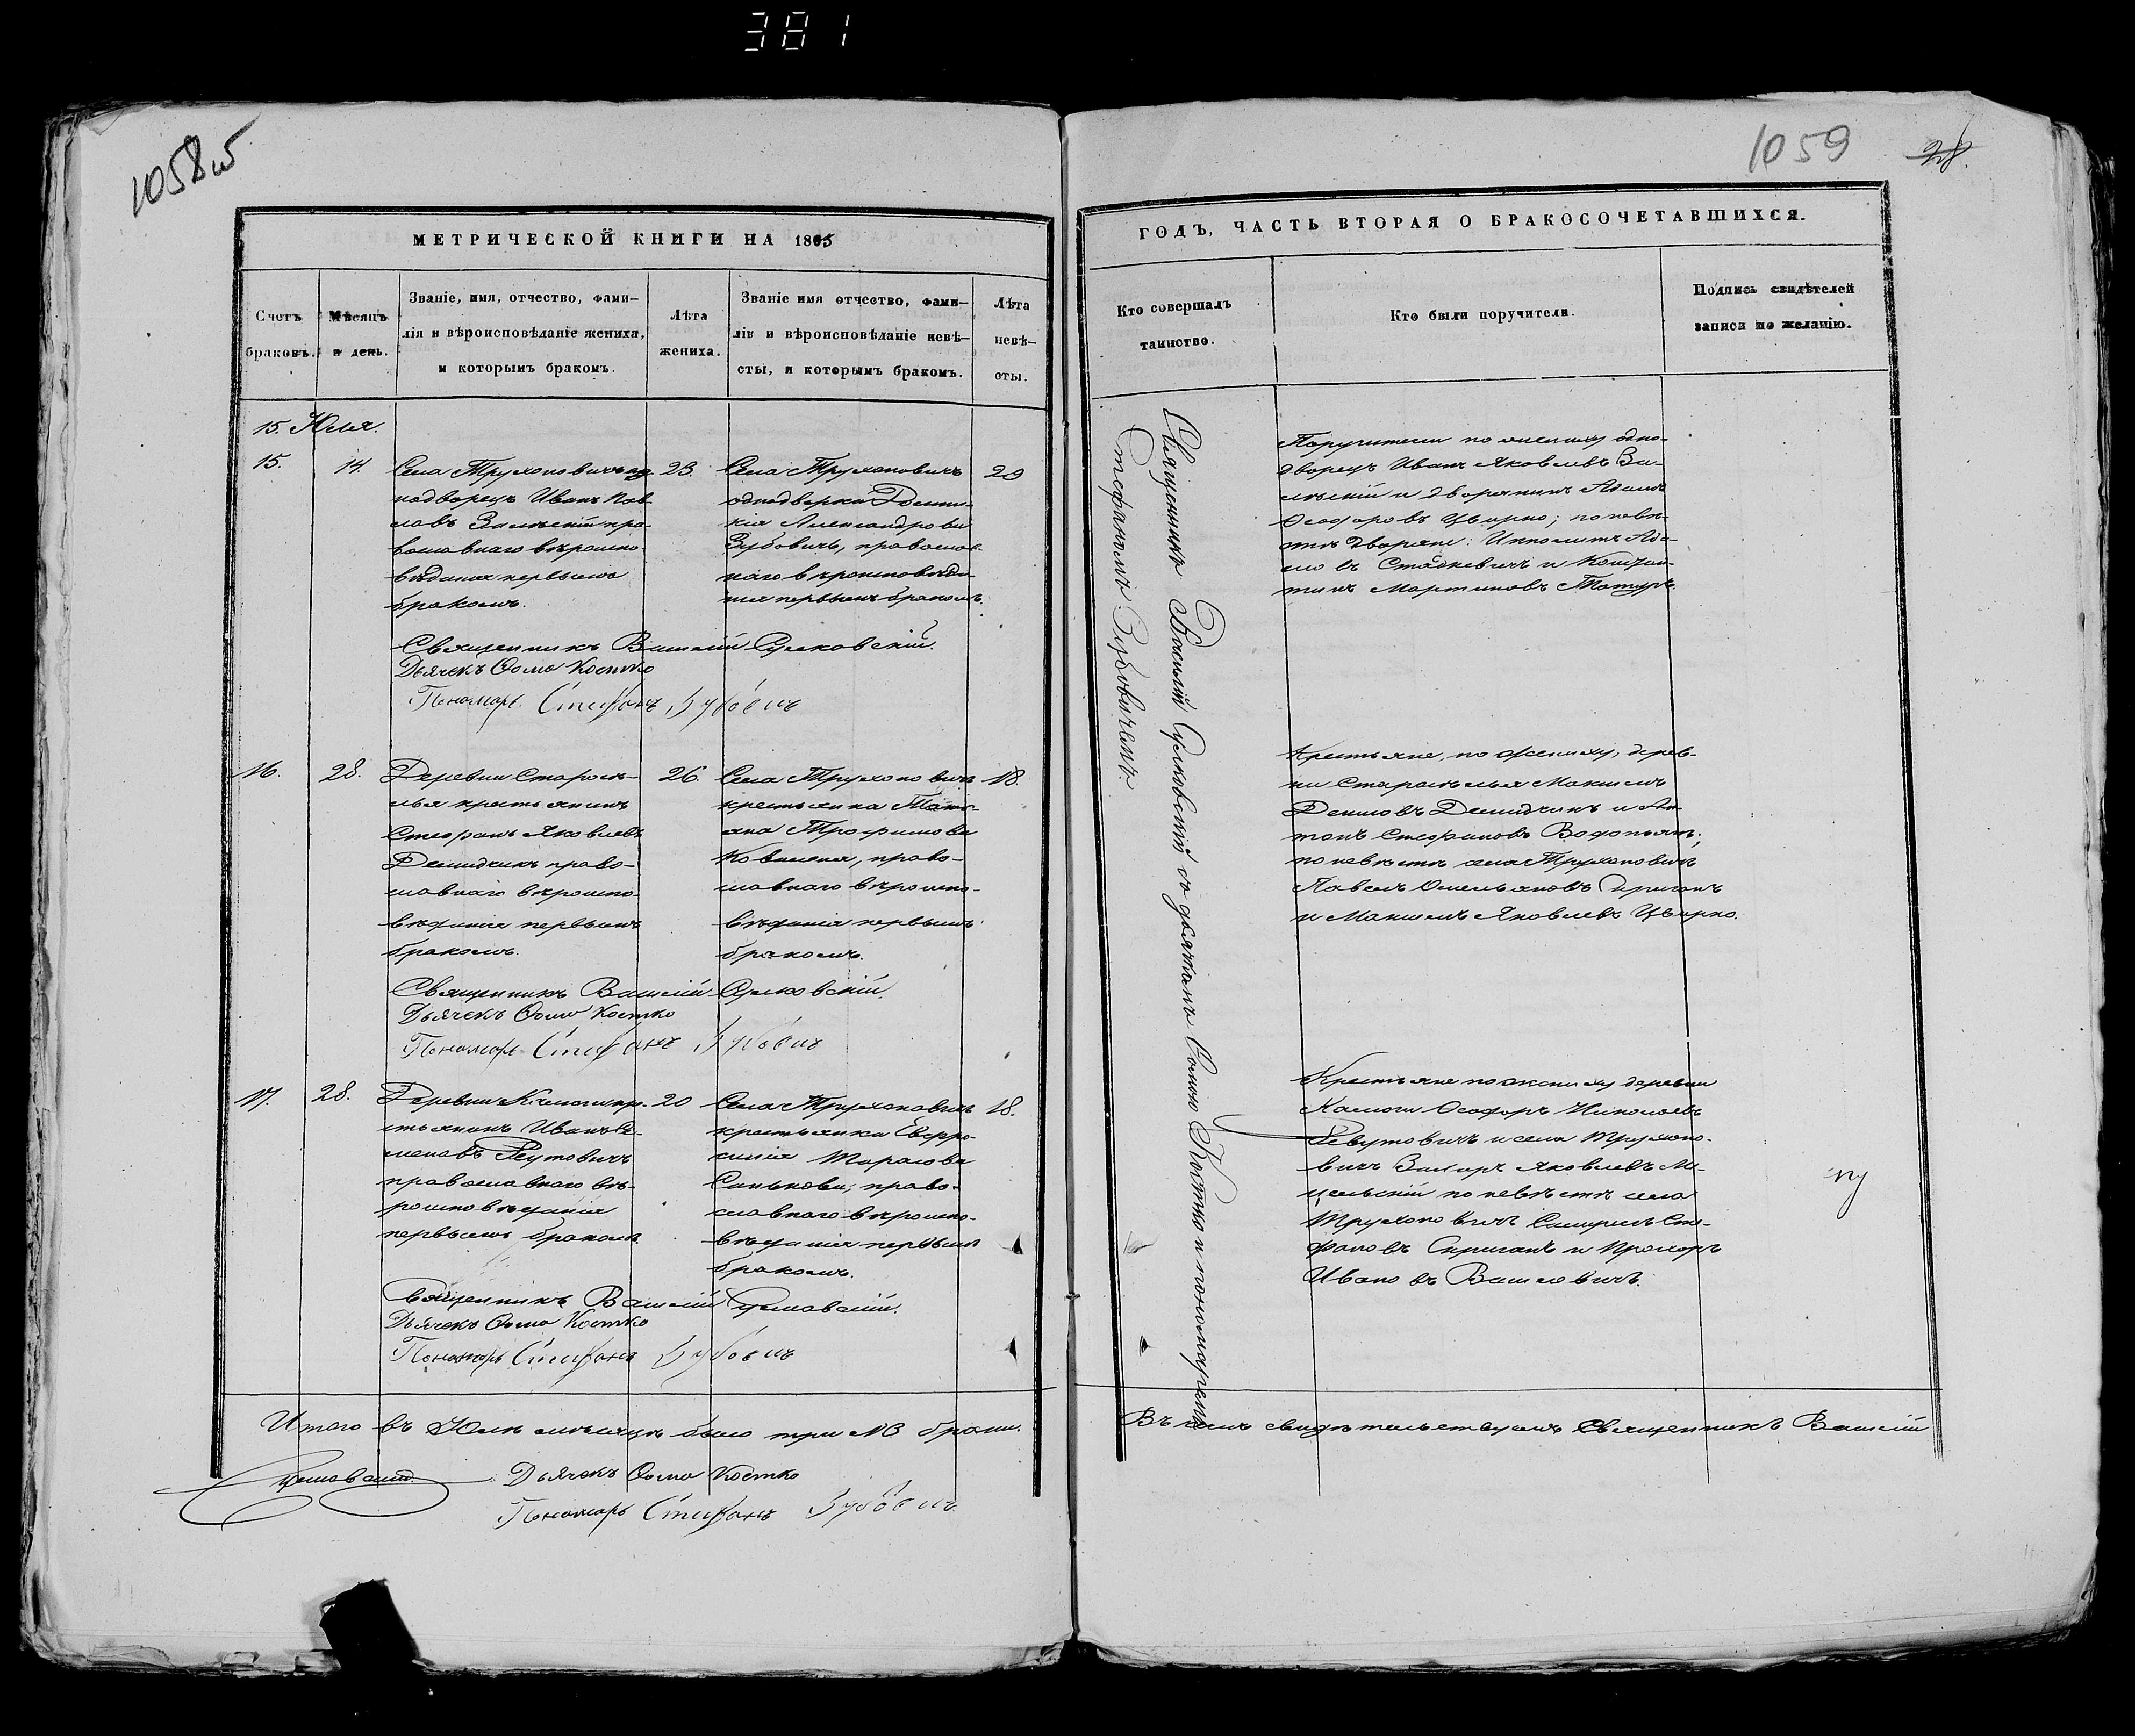 381
1058 об
МЕТРИЧЕСКОЙ КНИГИ НА 1865
Счетъ браковъ.
Мѣсяцъ и день.
Званіе, имя, отчество, фами-
лія и вѣроисповѣданіе жениха,
и которымъ бракомъ.
Лѣта
жениха.
Званіе имя отчество, фами-
лія и вѣроисповѣданіе невѣ-
сты, и которымъ бракомъ.
Лѣта
невѣ-
сты.
15. Юля.
15.
14.
Села Трухоновичъ од-
нодворецъ Иванъ Пав-
ловъ Залѣскій пра-
вославнаго вѣроиспо-
вѣданія первымъ
бракомъ.
23.
Села Трухоновичъ
однодворка Доми-
кія Александрова
Зубовичъ, православ-
наго вѣроисповѣда-
нія первымъ бракомъ.
23
Священникъ Василій Сулковскій.
Дьячекъ Ѳома Костко
Пономарь Стефанъ Зубовичъ
16.
28.
Деревни Старосе-
лья крестьянинъ
Стефанъ Яковлевъ
Демидчикъ право-
славнаго вѣроиспо-
вѣданія первымъ
бракомъ.
26.
Села Трухоновичъ
крестьянка Татьяна Трофимова
право-
славнаго вѣроиспо-
вѣданія первымъ
бракомъ.
18.
Священникъ Василій Сулковскій.
Дьячекъ Ѳома Костко
Пономарь Стефанъ Зубовичъ
17.
28.
Деревни Камоги кре-
стьянинъ Иванъ Се-
меновъ Реутовичъ
православнаго вѣ-
роисповѣданія
первымъ бракомъ.
20
Села Трухоновичъ
крестьянка Евфро-
синія Тарасова
Санькова, право-
славнаго вѣроиспо-
вѣданія первымъ
бракомъ.
18.
Священникъ Василій Сулковскій.
Дьячекъ Ѳома Костко
Пономарь Стефанъ Зубовичъ
Итого въ Юлѣ мѣсяцѣ было три №3 брака.
Сулковскій.
Дьячекъ Ѳома Костко
Пономарь Стефанъ Зубовичъ
1059
28.
ГОДЪ, ЧАСТЬ ВТОРАЯ О БРАКОСОЧЕТАВШИХСЯ.
Кто совершалъ
таинство.
Кто были поручители.
Подпись свидѣтелей
записи по желанію.
Священникъ Василій Сулковскій съ дьячкомъ Ѳомою Костко и пономаремъ
Стефаномъ Зубовичемъ.
Поручители по жениху одно-
дворецъ Иванъ Яковлевъ За-
лѣскій и дворянинъ Адамъ
Ѳеодоровъ Цвирко; по невѣ-
стѣ дворяне: Ипполитъ Ада-
мовъ Стадкевичъ и Констан-
тинъ Мартиновъ Татуръ.
Крестьяне, по жениху, дерев-
ни Староселья Максимъ
Денисовъ Демидчикъ и Ан-
тонъ Стефановъ Водопьянъ;
по невѣстѣ села Трухоновичъ
Павелъ Омельяновъ
и Максимъ Яковлевъ Цвирко.
Крестьяне по жениху деревни
Камоги Ѳеодоръ Николаевъ
Ревутовичъ и села Трухоно-
вичъ Захаръ Яковлевъ
по невѣстѣ села
Трухоновичъ Сте-
фановъ Скриганъ и Прохоръ
Ивановъ Василевичъ.
Въ чемъ свидѣтельствуемъ Священникъ Василій